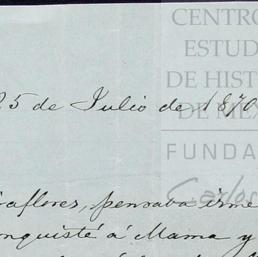 CENTRO
ESTUD
DE HIST
DE MÉ
FUNDA
Carlos
25 de Julio de 1870
raflores, pensaba irme
nquisté á Mama y